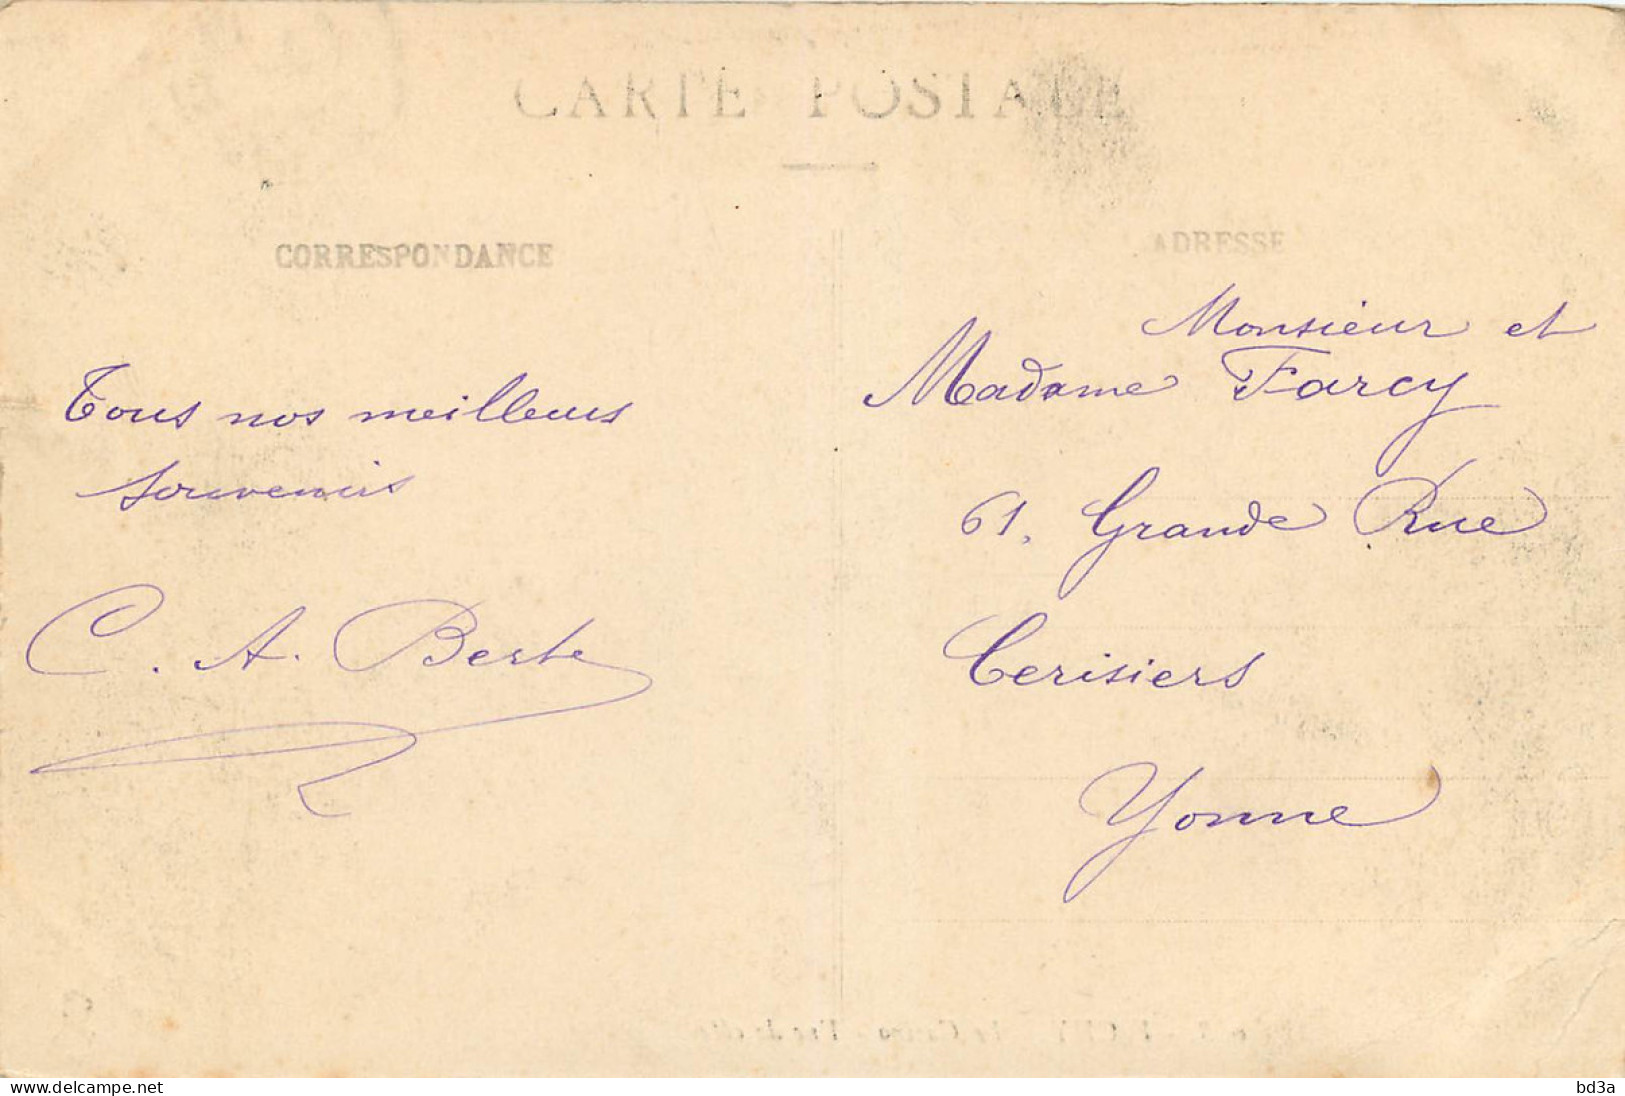 CARTE POSTALE
CORRESPONDANCE
Tous nos meilleurs
souvenirs
C. A. Berte
ADRESSE
Monsieur et
Madame Farcy
61. Grande Rue
Cerisiers
Yonne
www.delcampe.net
bd3a